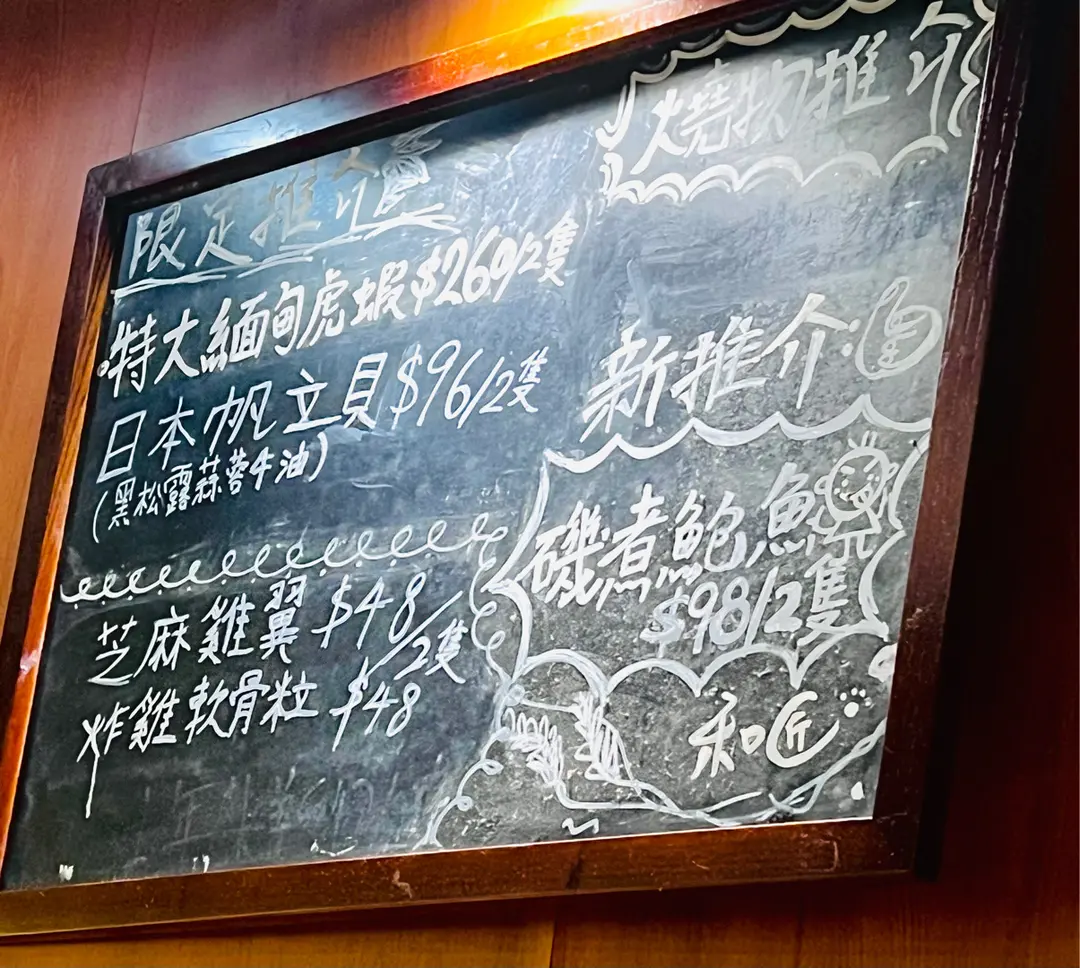 限定推介
·特大緬甸虎蝦$260/2隻
日本帆立貝$96/2隻
(黑松露蒜蓉牛油)
芝麻雞翼 $48/2隻
炸雞軟骨粒 $48
燒物推介
新推介:
磯煮鮑魚
$98/2隻
和匠